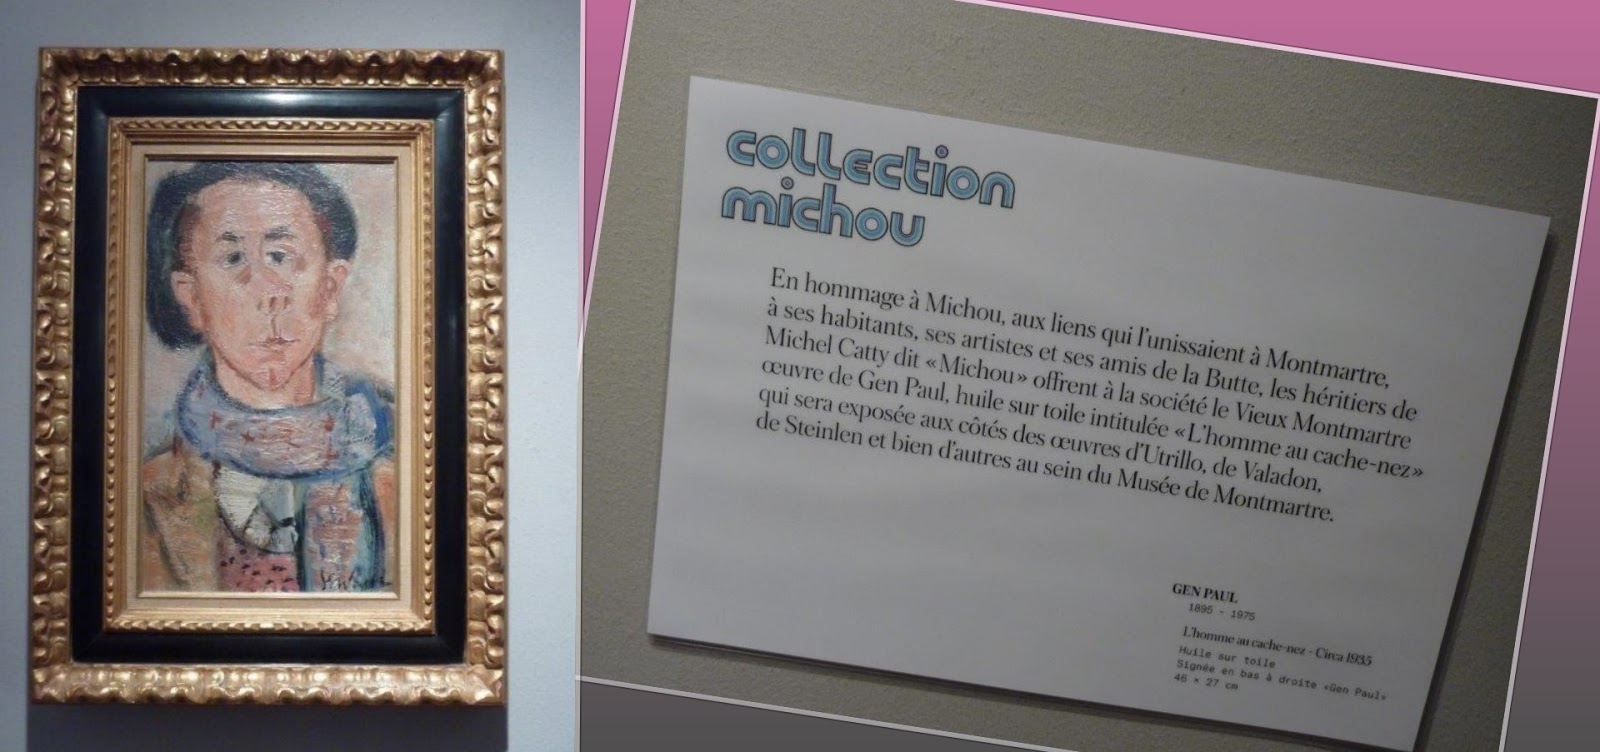 collection
michou
En hommage à Michou, aux liens qui l'unissaient à Montmartre,
à ses habitants, ses artistes et ses amis de la Butte, les héritiers de
Michel Catty dit «Michou» offrent à la société le Vieux Montmartre
œuvre de Gen Paul, huile sur toile intitulée «L'homme au cache-nez»
qui sera exposée aux côtés des œuvres d'Utrillo, de Valadon,
de Steinlen et bien d'autres au sein du Musée de Montmartre.
GEN PAUL
1895 - 1975
L'homme au cache-nez - Circa 1935
Huile sur toile
Signée en bas à droite «Gen Paul»
46 × 27 cm